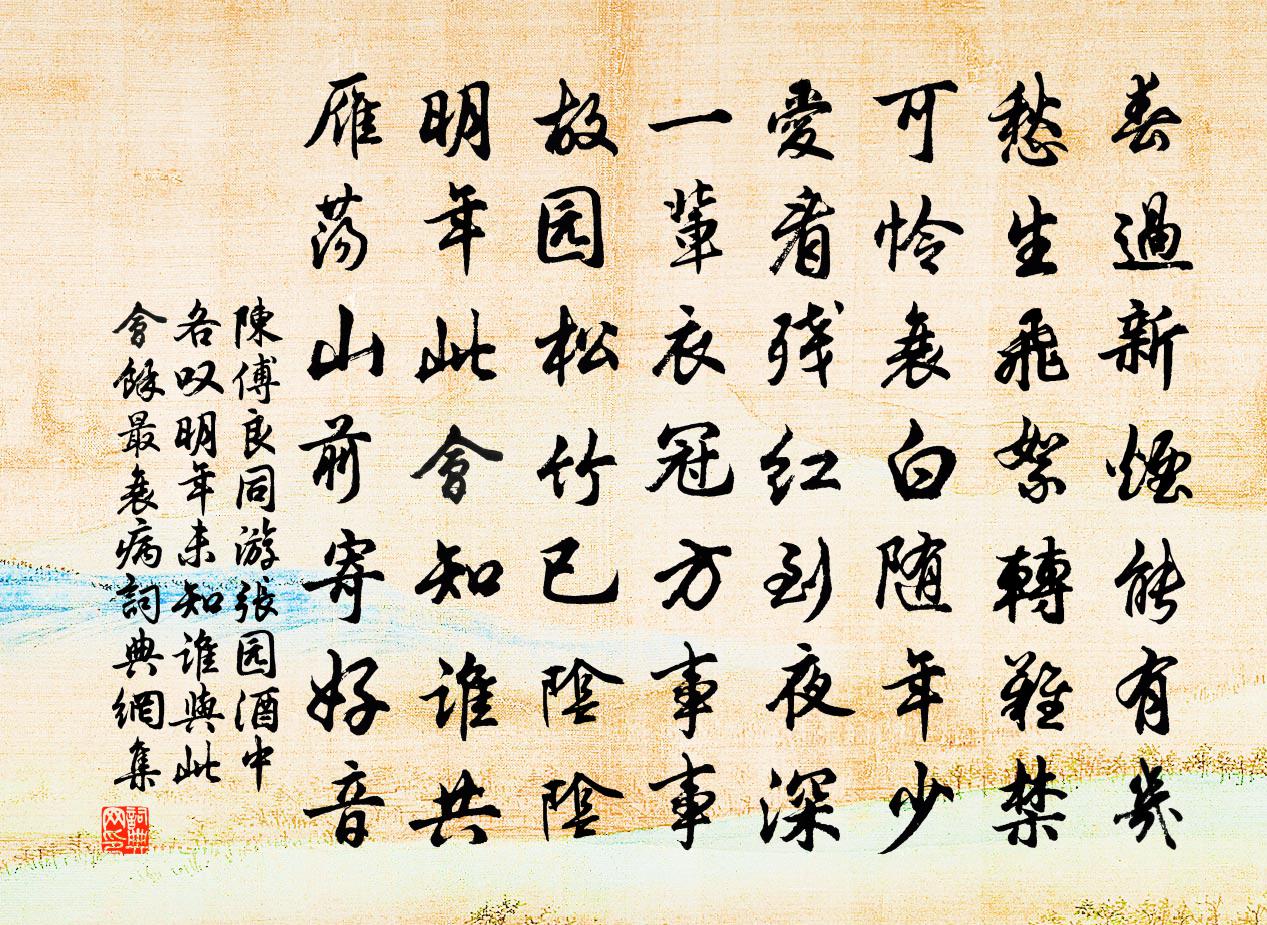 春過新煙能有幾
愁生飛絮轉難禁
可怜衰白随年少
愛看残红到夜深
一輩衣冠方事事
故园松竹已陰陰
明年此會知誰共
雁荡山前寄好音
陳傅良同游張园酒中
各叹明年未知誰與此
會餘最衰病詞典網集
詞典
网印